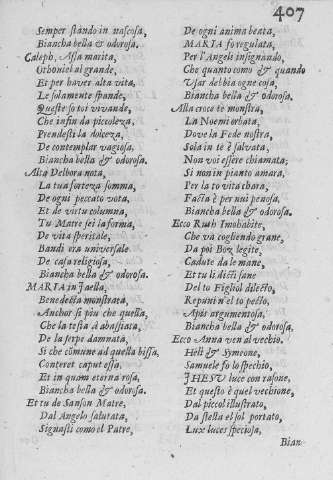 407
Semper stando in nascosa,
Biancha bella & odorosa.
Caleph, Assa marita,
Othoniel al grande,
Et per haver alta vita,
Le solamente spande,
Queste so toi vivande,
Che infin da piccoleza,
Prendesti la dolceza,
De contemplar vagiosa,
Biancha bella & odorosa.
Alta Delbora nota,
La tua forteza somma,
De ogni peccato vota,
Et de virtu columna,
Tu Matre sei la forma,
De vita speritale,
Bandi era universale
De casa religiosa,
Biancha bella & odorosa.
MARIA in Jaella,
Benedecta monstrata,
Anchor si piu che quella,
Che la testa à abassiata,
De la serpe damnata,
Si che comune ad quella bissa,
Conteret caput essa,
Et in quam eterna rosa,
Biancha bella & odorosa.
Et tu de Sanson Matre,
Dal Angelo salutata,
Signasti como el Patre,
De ogni anima beata,
MARIA fo regulata,
Per l'Angeli insignando,
Che quanto como & quando
Usar debbia ogne cosa,
Biancha bella & odorosa.
Alla croce te monstra,
La Noemi orbata,
Dove la Fede nostra,
Sola in te è salvata,
Non voi essere chiamata;
Si non in pianto amara,
Per la to vita chara,
Facta è per nui penosa,
Biancha bella & odorosa.
Ecco Ruth Imohabite,
Che va cogliendo grane,
Da poi Boz legite,
Cadute da le mane,
Et tu li dicti sane
Del to Figliol dilecto,
Repuni n'el to pecto,
Apis argumentosa,
Biancha bella & odorosa.
Ecco Anna ven al vechio.
Heli & Symeone,
Samuele fo lo spechio,
JHESU luce con rasone,
Et questo è quel vechione,
Dal piccol illustrato,
Da stella el sol portato,
Lux luces speciosa,
Bian-